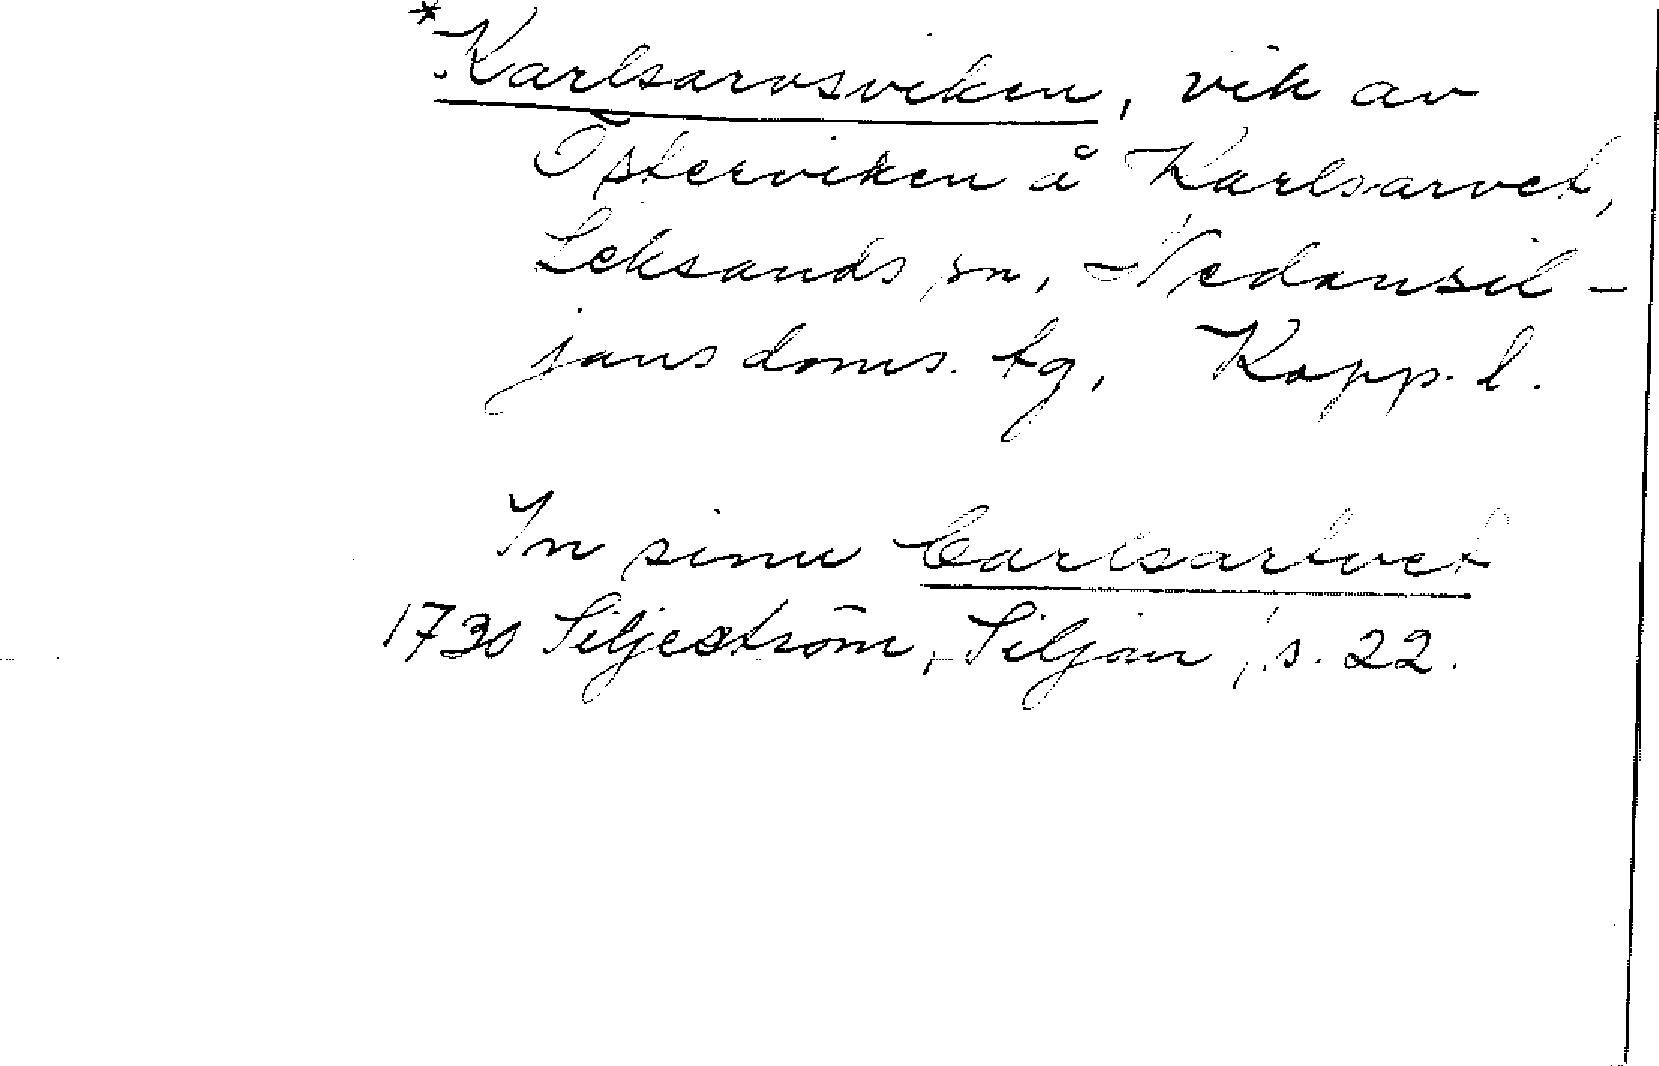 *Karlsarvsviken, vik av
Österviken å Karlsarvet,
Leksands sn, Nedansil-
jans doms. tg, Kopp. l.
In sinu Carlsarfvet
1730 Siljeström, Siljan, s. 22.